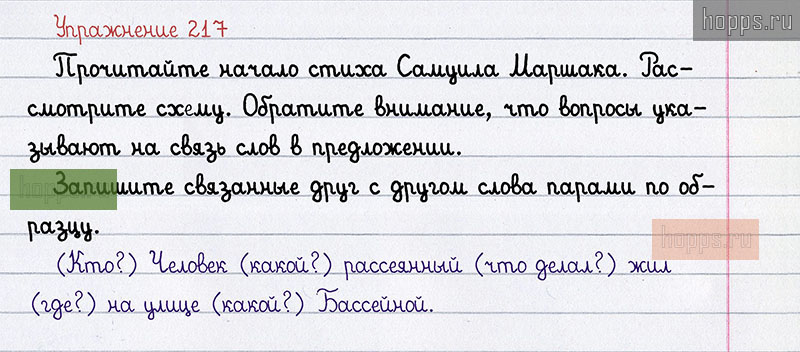 hopps.ru
Упражнение 217
Прочитайте начало стиха Самуила Маршака. Рас-
смотрите схему. Обратите внимание, что вопросы ука-
зывают на связь слов в предложении.
hopps.ru
Запишите связанные друг с другом слова парами по об-
разцу.
hopps.ru
(Кто?) Человек (какой?) рассеянный (что делал?) жил
(где?) на улице (какой?) Бассейной.